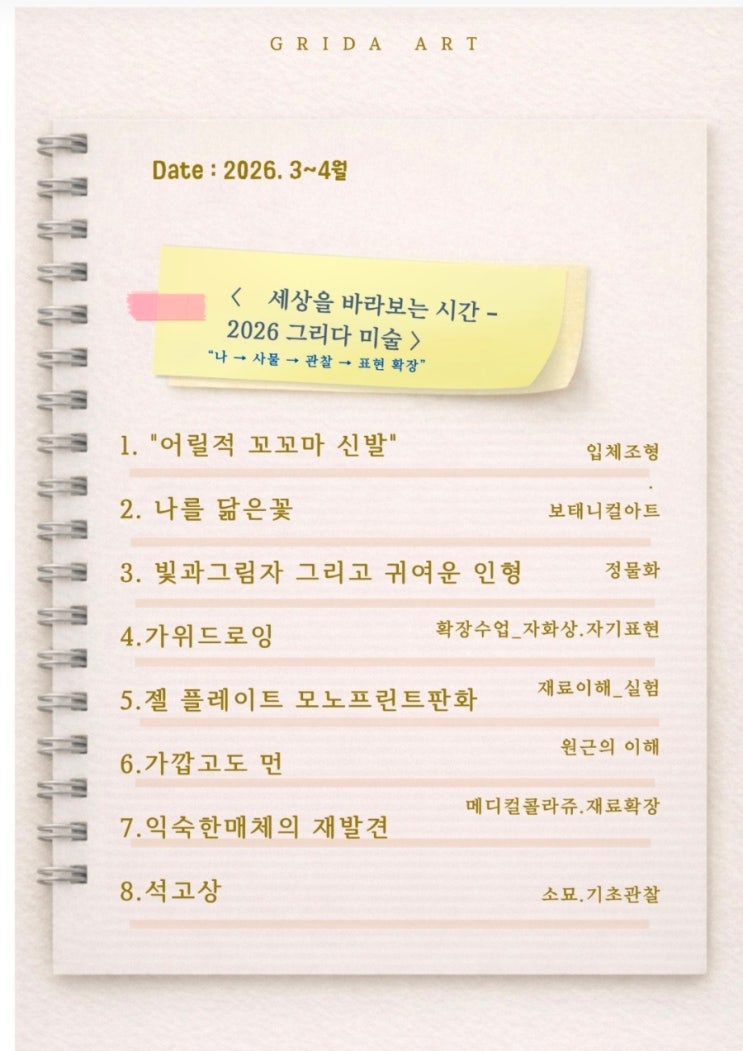 GRIDA ART
Date : 2026. 3~4월
< 세상을 바라보는 시간 -
2026 그리다 미술 >
"나 → 사물 → 관찰 → 표현 확장"
1. "어릴적 꼬꼬마 신발" 입체조형
.
2. 나를 닮은꽃 보태니컬아트
3. 빛과그림자 그리고 귀여운 인형 정물화
4.가위드로잉 확장수업_자화상.자기표현
5.젤 플레이트 모노프린트판화 재료이해_실험
6.가깝고도 먼 원근의 이해
7.익숙한매체의 재발견 메디컬콜라쥬.재료확장
8.석고상 소묘.기초관찰